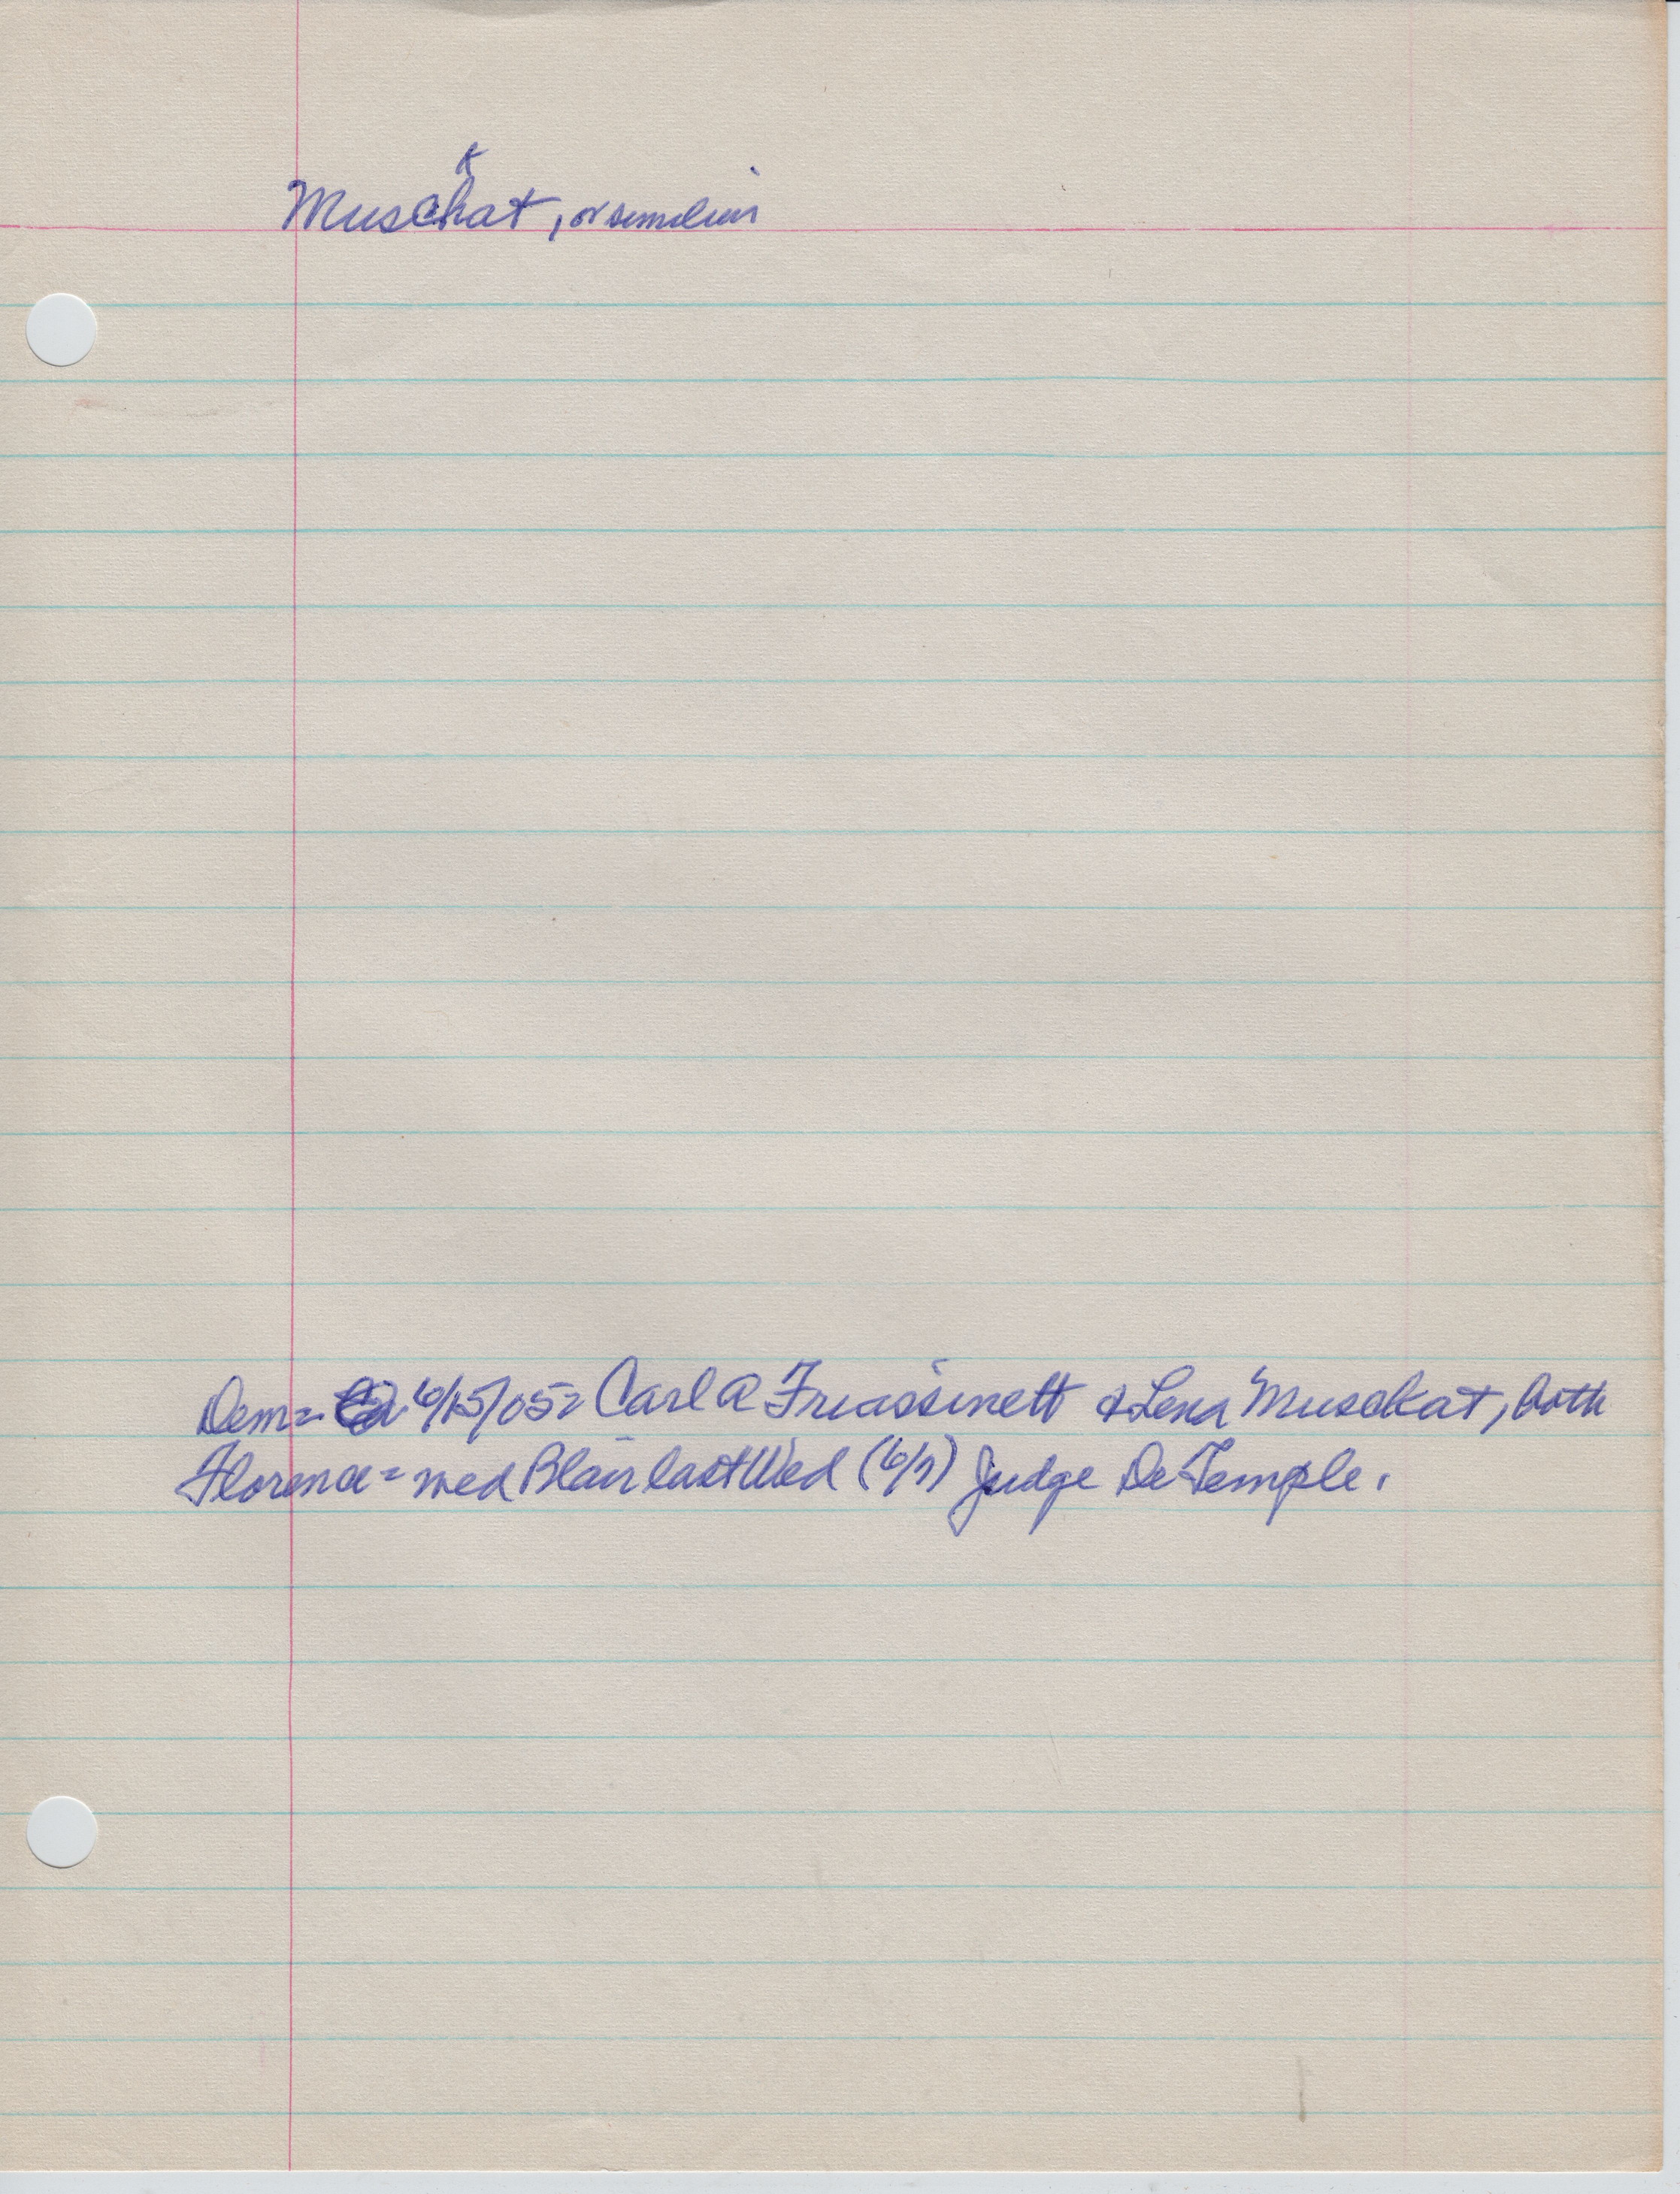 k
Muschat, or similar
Dem= 6/15/05= Carl A Friassinett & Lena Musckat, both
Florence = wed Blair last Wed (6/7) Judge De Temple.